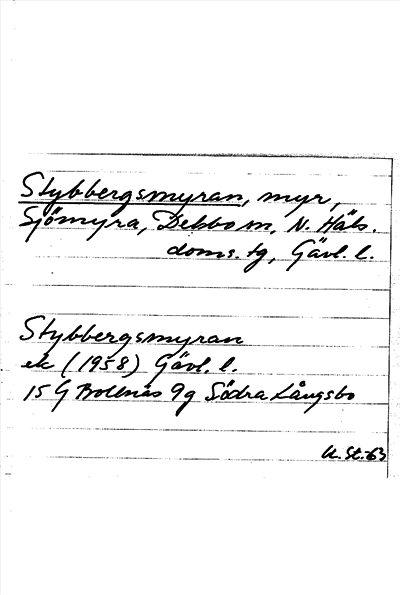 Stybbergsmyran, myr,
Sjömyra, Delsbo sn, N. Häls.
doms. tg, Gävl. l.
Stybbergsmyran
ek (1958) Gävl. l.
15 G Bollnäs 9g Södra Långsbo
U. St. -63